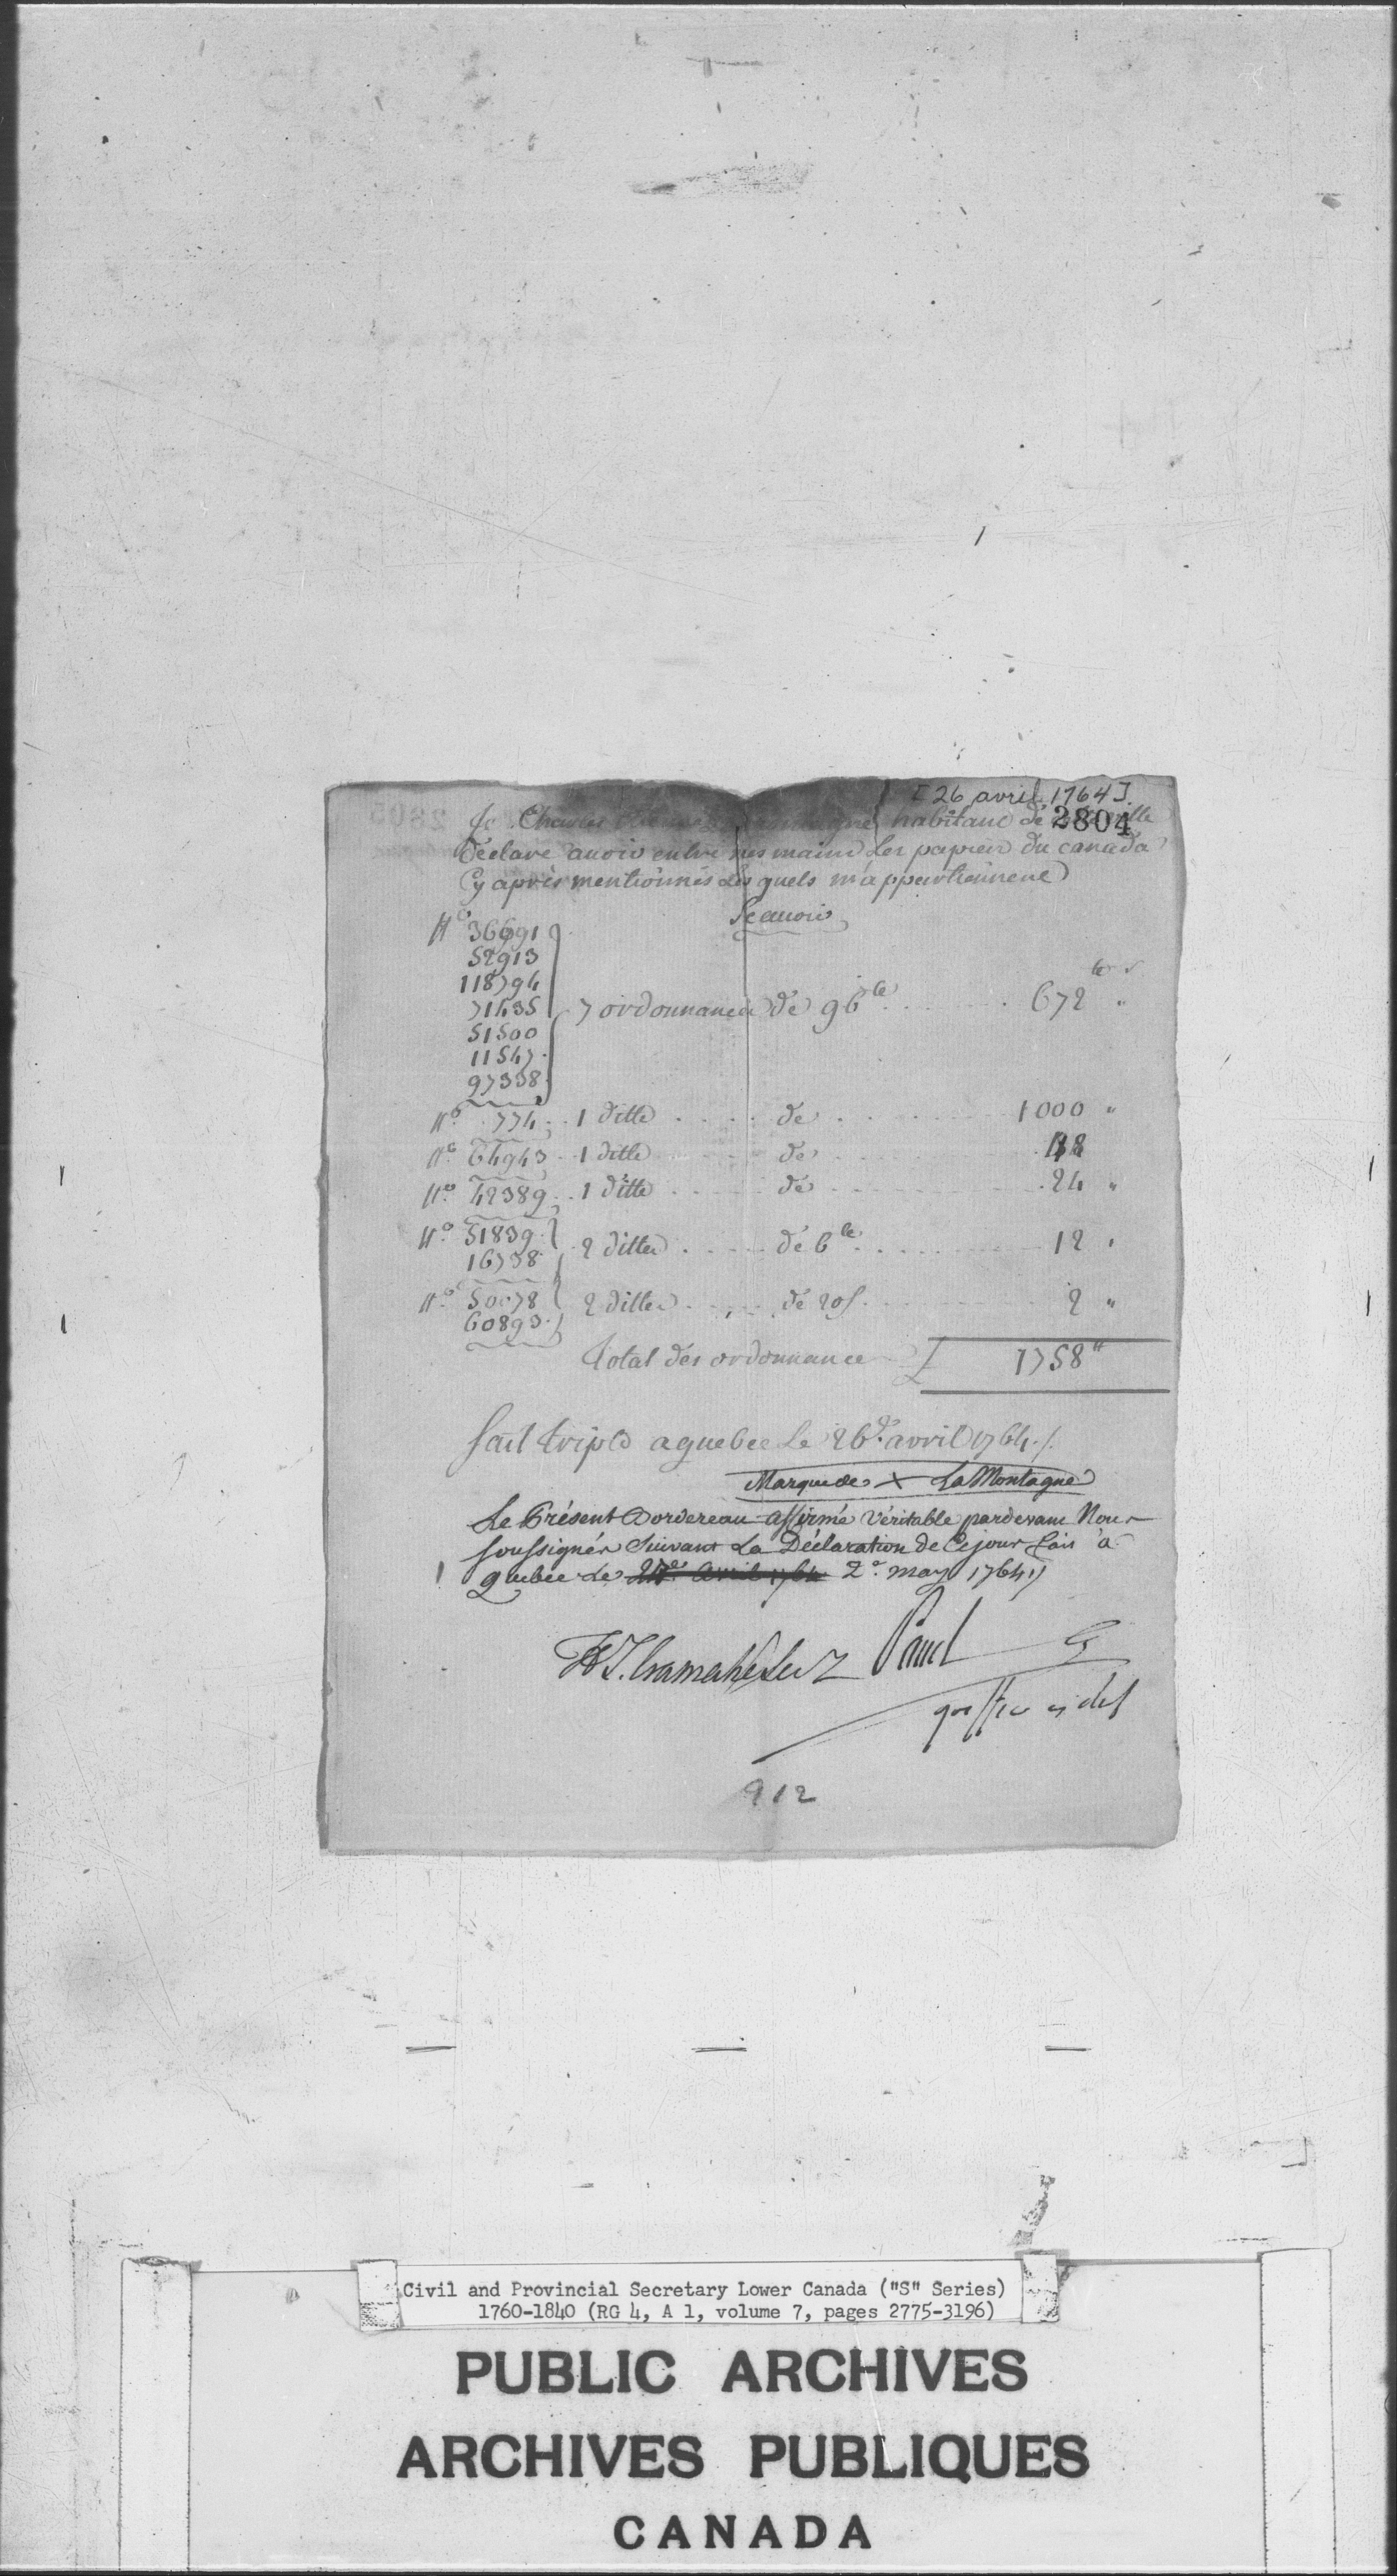 [26 avril 1764].
2804
Je Charles habitant de ville
déclare auoir entre mes mains Les papiers du canada
Cy après mentionnés Lesquels m'appartiennent
Scauoir
N° 36691
52913
118794
71435 7 ordonnances de 96ll 672 "
51500
11547
97338
N° 774 1 ditte de 1000 "
N° 64943 1 ditte de 48
N° 42389 1 ditte de 24 "
N° 31839 2 dittes de 6ll 12 "
16738
N° 50078 2 dittes de 20s 2 "
60893
Total des ordonnances 1758ll
fait triple a quebec Le 26e avril 1764 /.
Marque de + La Montagne
Le Présent Bordereau affirmé Véritable pardevant Nous
soussignés Suivant La Déclaration de Ce jour fait à
Quebec Le avril 1764 2e may 1764 ./
H T. Cramahé Panet
greffier
912
Civil and Provincial Secretary Lower Canada ("S" Series)
1760-1840 (RG 4, A 1, volume 7, pages 2775-3196)
PUBLIC ARCHIVES
ARCHIVES PUBLIQUES
CANADA